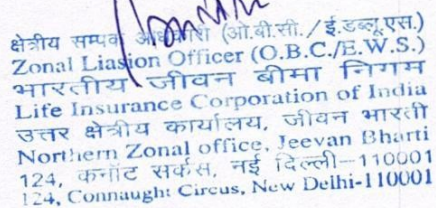 क्षेत्रीय सम्पर्क अधिकारी (ओ.बी.सी./ई.डब्लू.एस.)
Zonal Liasion Officer (O.B.C./E.W.S.)
भारतीय जीवन बीमा निगम
Life Insurance Corporation of India
उत्तर क्षेत्रीय कार्यालय, जीवन भारती
Northern Zonal office, Jeevan Bharti
124, कनॉट सर्कस, नई दिल्ली-110001
124, Connaught Circus, New Delhi-110001